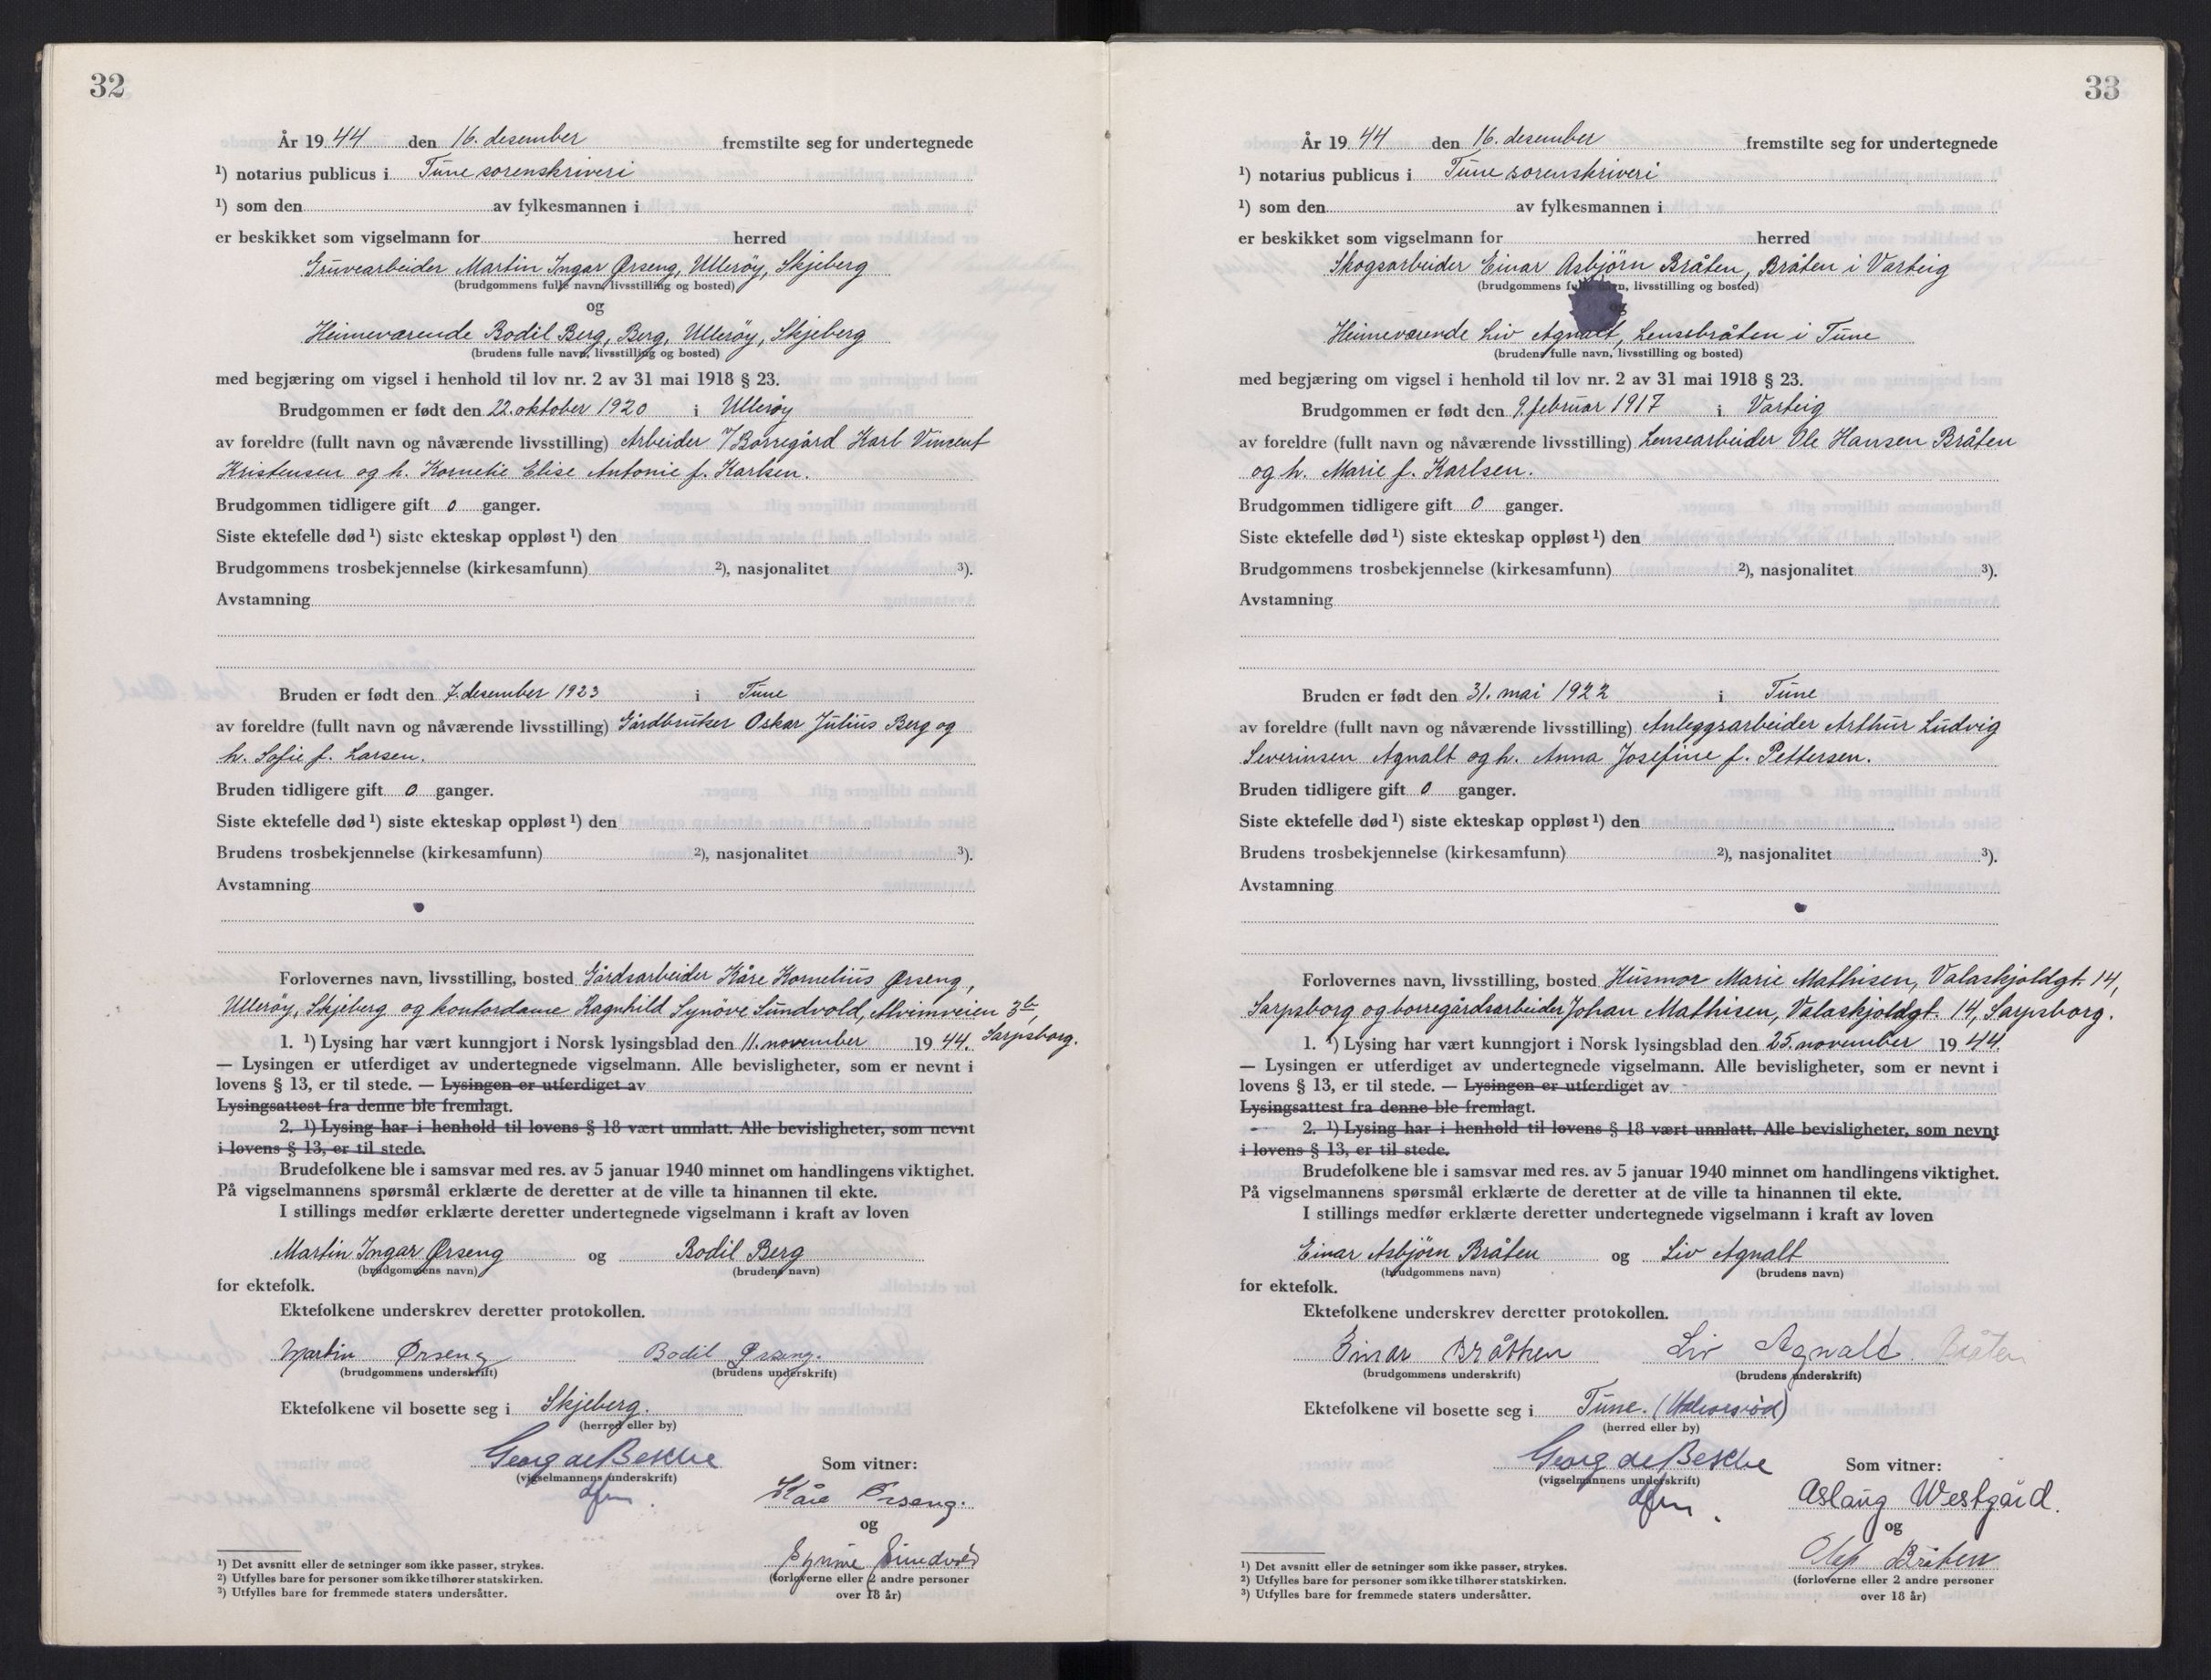 32
År 1944 den 16. desember fremstilte seg for undertegnede
¹) notarius publicus i Tune sorenskriveri
¹) som den av fylkesmannen i
er beskikket som vigselmann for herred
Gruvearbeider Martin Ingar Ørseng, Ullerøy, Skjeberg
(brudgommens fulle navn, livsstilling og bosted)
og
Heimeværende Bodil Berg, Berg, Ullerøy, Skjeberg
(brudens fulle navn, livsstilling og bosted)
med begjæring om vigsel i henhold til lov nr. 2 av 31 mai 1918 § 23.
Brudgommen er født den 22. oktober 1920 i Ullerøy
av foreldre (fullt navn og nåværende livsstilling) Arbeider v/Borregård Karl Vincent
Kristensen og h. Kornelie Elise Antonie f. Karlsen.
Brudgommen tidligere gift 0 ganger.
Siste ektefelle død ¹) siste ekteskap oppløst ¹) den
Brudgommens trosbekjennelse (kirkesamfunn) ²), nasjonalitet ³).
Avstamning
Bruden er født den 7. desember 1923 i Tune
av foreldre (fullt navn og nåværende livsstilling) Gårdbruker Oskar Julius Berg og
h. Sofie f. Larsen.
Bruden tidligere gift 0 ganger.
Siste ektefelle død ¹) siste ekteskap oppløst ¹) den
Brudens trosbekjennelse (kirkesamfunn) ²), nasjonalitet ³).
Avstamning
Forlovernes navn, livsstilling, bosted Gårdsarbeider Kåre Kornelius Ørseng,
Ullerøy, Skjeberg og kontordame Ragnhild Synöve Sundvold, Alvimveien 3b,
Sarpsborg.
1. ¹) Lysing har vært kunngjort i Norsk lysingsblad den 11. november 1944.
— Lysingen er utferdiget av undertegnede vigselmann. Alle bevisligheter, som er nevnt i
lovens § 13, er til stede. — Lysingen er utferdiget av
Lysingsattest fra denne ble fremlagt.
2. ¹) Lysing har i henhold til lovens § 18 vært unnlatt. Alle bevisligheter, som nevnt
i lovens § 13, er til stede.
Brudefolkene ble i samsvar med res. av 5 januar 1940 minnet om handlingens viktighet.
På vigselmannens spørsmål erklærte de deretter at de ville ta hinannen til ekte.
I stillings medfør erklærte deretter undertegnede vigselmann i kraft av loven
Martin Ingar Ørseng og Bodil Berg
(brudgommens navn) (brudens navn)
for ektefolk.
Ektefolkene underskrev deretter protokollen.
Martin Ørseng Bodil Ørseng.
(brudgommens underskrift) (brudens underskrift)
Ektefolkene vil bosette seg i Skjeberg.
(herred eller by)
Georg de Besche
(vigselmannens underskrift)
dfm.
Som vitner:
Kåre Ørseng.
og
Synöve Sundvold
(forloverne eller 2 andre personer
over 18 år)
¹) Det avsnitt eller de setninger som ikke passer, strykes.
²) Utfylles bare for personer som ikke tilhører statskirken.
³) Utfylles bare for fremmede staters undersåtter.
33
År 1944 den 16. desember fremstilte seg for undertegnede
¹) notarius publicus i Tune sorenskriveri
¹) som den av fylkesmannen i
er beskikket som vigselmann for herred
Skogsarbeider Einar Asbjörn Bråten, Bråten i Varteig
(brudgommens fulle navn, livsstilling og bosted)
og
Heimeværende Liv Agnalt, Lensebråten i Tune
(brudens fulle navn, livsstilling og bosted)
med begjæring om vigsel i henhold til lov nr. 2 av 31 mai 1918 § 23.
Brudgommen er født den 9. februar 1917 i Varteig
av foreldre (fullt navn og nåværende livsstilling) Lensearbeider Ole Hansen Bråten
og h. Marie f. Karlsen.
Brudgommen tidligere gift 0 ganger.
Siste ektefelle død ¹) siste ekteskap oppløst ¹) den
Brudgommens trosbekjennelse (kirkesamfunn) ²), nasjonalitet ³).
Avstamning
Bruden er født den 31. mai 1922 i Tune
av foreldre (fullt navn og nåværende livsstilling) Anleggsarbeider Arthur Ludvig
Severinsen Agnalt og h. Anna Josefine f. Pettersen.
Bruden tidligere gift 0 ganger.
Siste ektefelle død ¹) siste ekteskap oppløst ¹) den
Brudens trosbekjennelse (kirkesamfunn) ²), nasjonalitet ³).
Avstamning
Forlovernes navn, livsstilling, bosted Husmor Marie Mathisen, Valaskjoldgt. 14,
Sarpsborg og borregårdsarbeider Johan Mathisen, Valaskjoldgt. 14, Sarpsborg.
1. ¹) Lysing har vært kunngjort i Norsk lysingsblad den 25. november 1944.
— Lysingen er utferdiget av undertegnede vigselmann. Alle bevisligheter, som er nevnt i
lovens § 13, er til stede. — Lysingen er utferdiget av
Lysingsattest fra denne ble fremlagt.
2. ¹) Lysing har i henhold til lovens § 18 vært unnlatt. Alle bevisligheter, som nevnt
i lovens § 13, er til stede.
Brudefolkene ble i samsvar med res. av 5 januar 1940 minnet om handlingens viktighet.
På vigselmannens spørsmål erklærte de deretter at de ville ta hinannen til ekte.
I stillings medfør erklærte deretter undertegnede vigselmann i kraft av loven
Einar Asbjörn Bråten og Liv Agnalt
(brudgommens navn) (brudens navn)
for ektefolk.
Ektefolkene underskrev deretter protokollen.
Einar Bråthen Liv Agnalt Bråten
(brudgommens underskrift) (brudens underskrift)
Ektefolkene vil bosette seg i Tune.
(herred eller by)
Georg de Besche
(vigselmannens underskrift)
dfm.
Som vitner:
Aslaug Westgård.
og
Olaf Bråten
(forloverne eller 2 andre personer
over 18 år)
¹) Det avsnitt eller de setninger som ikke passer, strykes.
²) Utfylles bare for personer som ikke tilhører statskirken.
³) Utfylles bare for fremmede staters undersåtter.